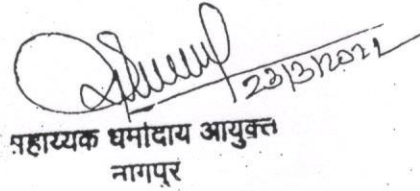 23/3/2021
सहाय्यक धर्मादाय आयुक्त
नागपूर